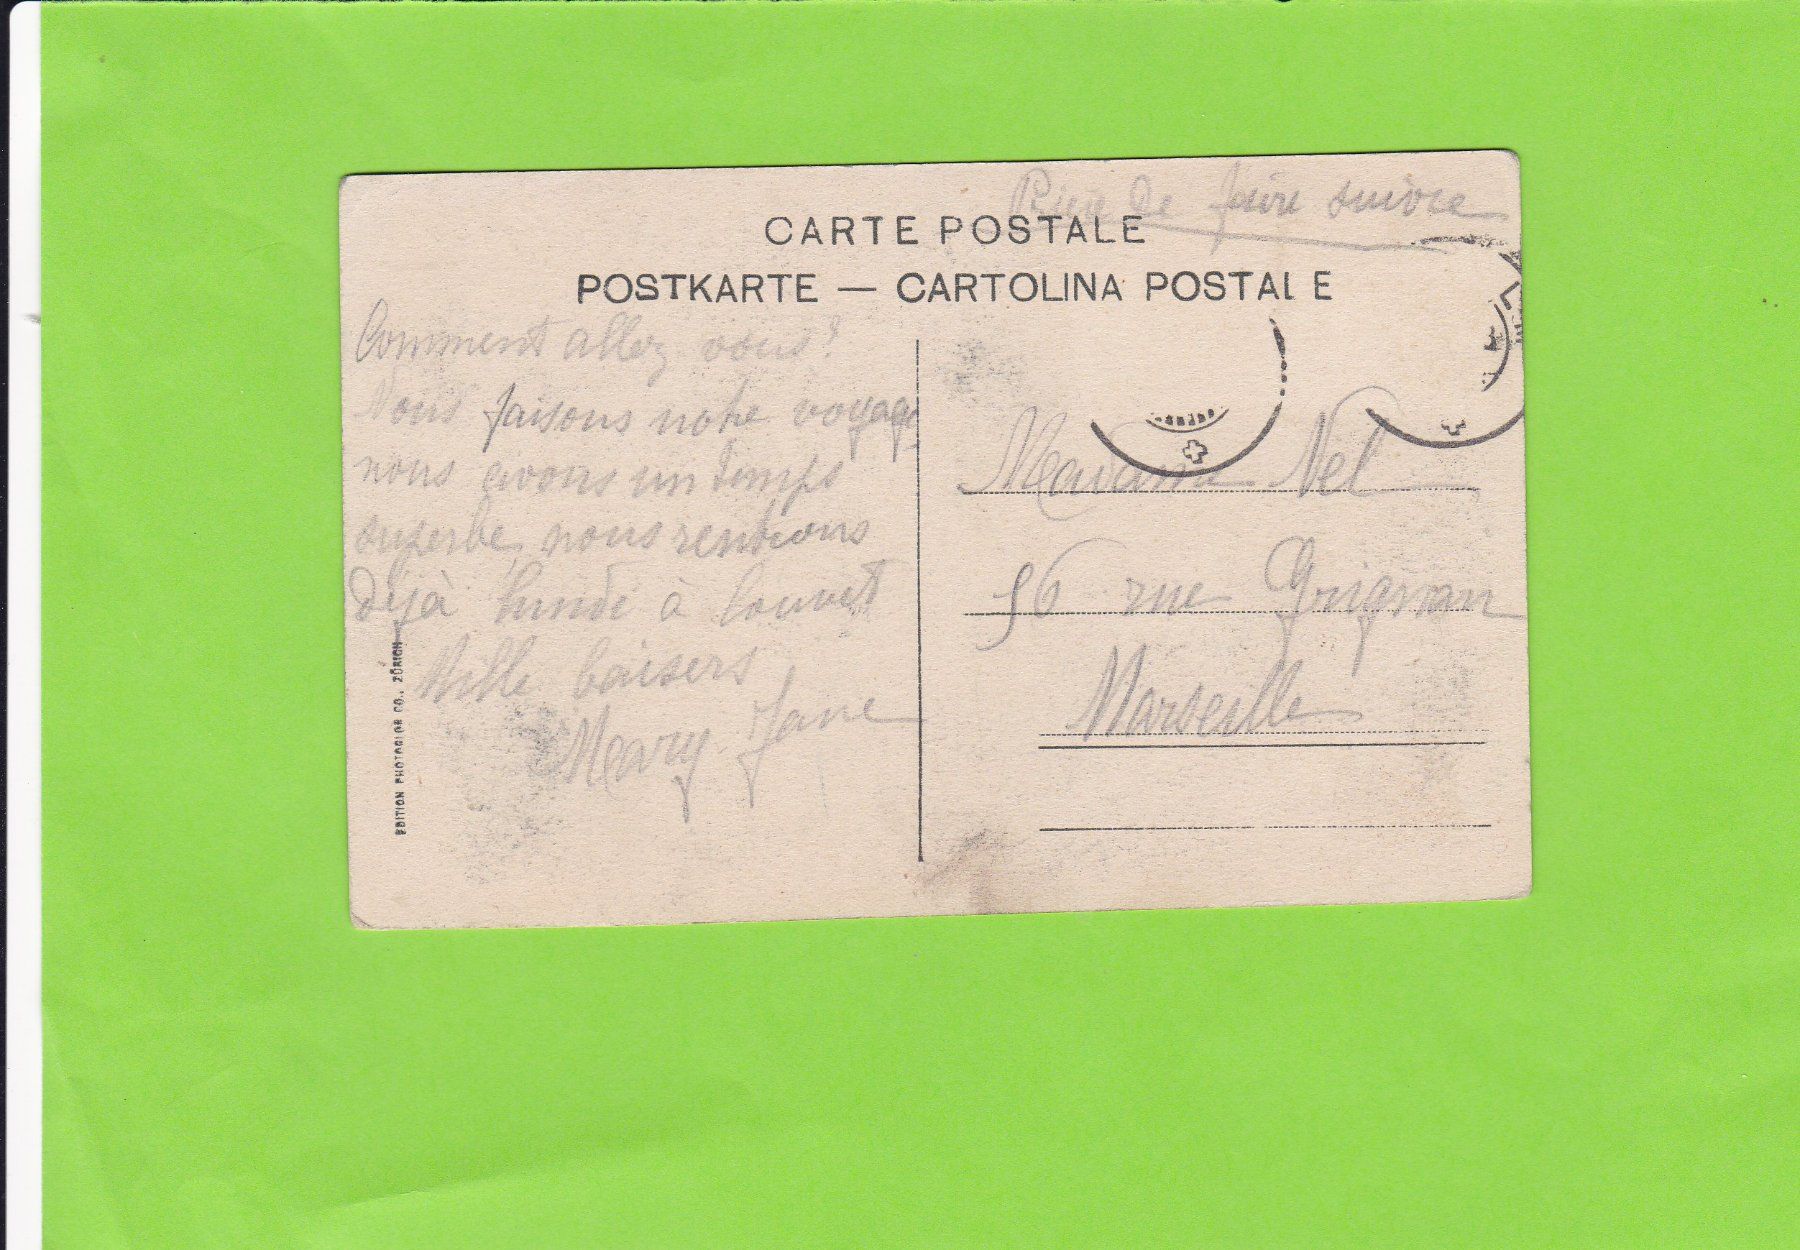 Prière de faire suivre
CARTE POSTALE
POSTKARTE — CARTOLINA POSTALE
Comment allez vous?
Nous faisons notre voyage
nous avons un temps
superbe, nous rentrons
déjà lundi à Louvet
Mille baisers
Mary Jane
Madame Nel
56 rue Grignan
Marseille
EDITION PHOTOGLOB CO., ZÜRICH